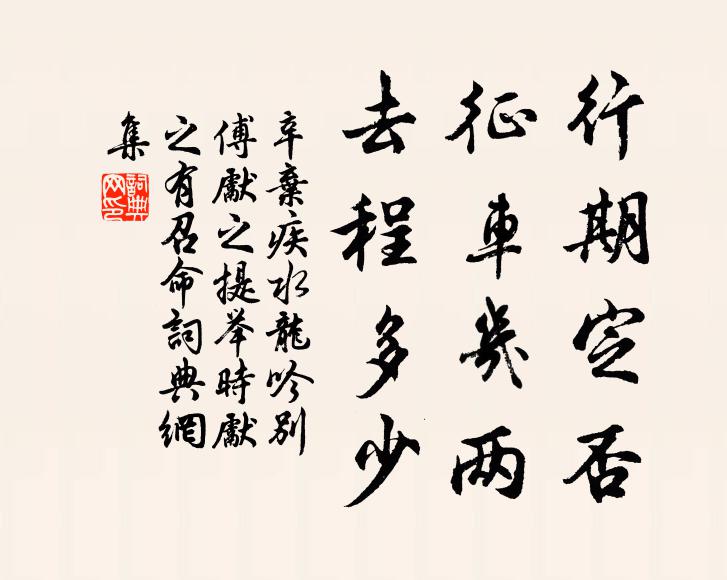 行期定否
征車幾两
去程多少
辛棄疾水龍吟别
傅獻之提举時獻
之有召命詞典網
集
詞典
网印